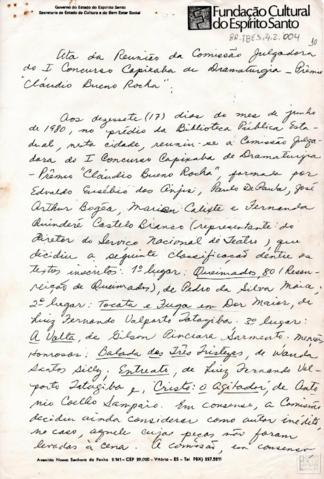 Governo do Estado do Espírito Santo
Secretaria de Estado da Cultura e do Bem Estar Social
Fundação Cultural
do Espírito Santo
BR.IBES.4.2.004
Ata da Reunião da Comissão Julgadora
do I Concurso Capixaba de Dramaturgia - Prêmio
"Cláudio Bueno Rocha";
Aos dezessete (17) dias do mes de junho
de 1980, no prédio da Biblioteca Pública Esta-
dual, nesta cidade, reuniu-se a Comissão Julga-
dora do I Concurso Capixaba de Dramaturgia-
Prêmio "Cláudio Bueno Rocha", formada por
Edvaldo Eusébio dos Anjos, Paulo DePaula, José
Arthur Bogéa, Marien Calixte e Fernanda
Quinderé Castelo Branco (representante do
Diretor do Serviço Nacional de Teatro), que
decidiu a seguinte classificação dentre os
textos inscritos: 1º lugar: Queimados, 80 (Ressur-
reição de Queimados), de Pedro da Silva Maia,
2º lugar: Tocata e Fuga em Dor Maior, de
Luiz Fernando Valporto Tatagiba. 3º lugar:
A Volta, de Gilson Sarmento. Menções
Honrosas: Calada das Três Tristezas, de Wanda
Santos Silly. Entreato, de Luiz Fernando Val-
porto Tatagiba e, Cristo: o Agitador, de Antô-
nio Coelho Sampaio. Em consenso, a Comissão
decidiu ainda considerar como autor inédito,
no caso, aquele cujas peças não foram
levadas à cena. A comissão, em consenso
Avenida Nossa Senhora da Penha - CEP 29.000 - Vitória - ES - Tel. PBX